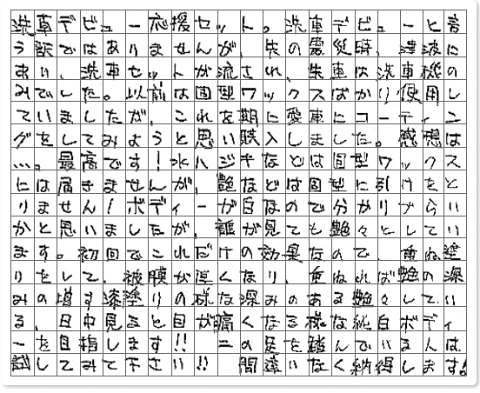 洗車デビュー応援セット。洗車デビューと言
う訳ではありませんが、先の震災時、津波に
あい、洗車セットが流され、失車は洗車機の
みでした。以前は固型ワックスばかり使用し
ていましたが、これを期に愛車にコーティン
グをしてみようと思い購入しました。感想は
…。最高です！水ハジキなどは固型ワックス
には届きませんが、艶などは固型に引けをと
りません！ボディーが白なので分かりづらい
かと思いましたが、誰が見ても艶々としてい
ます。初回でこれだけの効果なので、重ね塗
りをして、被膜が厚くなり、重ねれば艶の深
みの増す漆塗りの様な深みのある艶々してい
る、日中見ると目が痛くなる様な純白ボディ
ーを目指します！！二の足を踏んでいる人は
試してみて下さい！！間違いなく納得します！